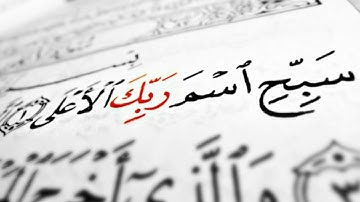 سَبِّحِ ٱسْمَ رَبِّكَ ٱلْأَعْلَى ١
وَٱلَّذِىٓ أَخْرَجَ